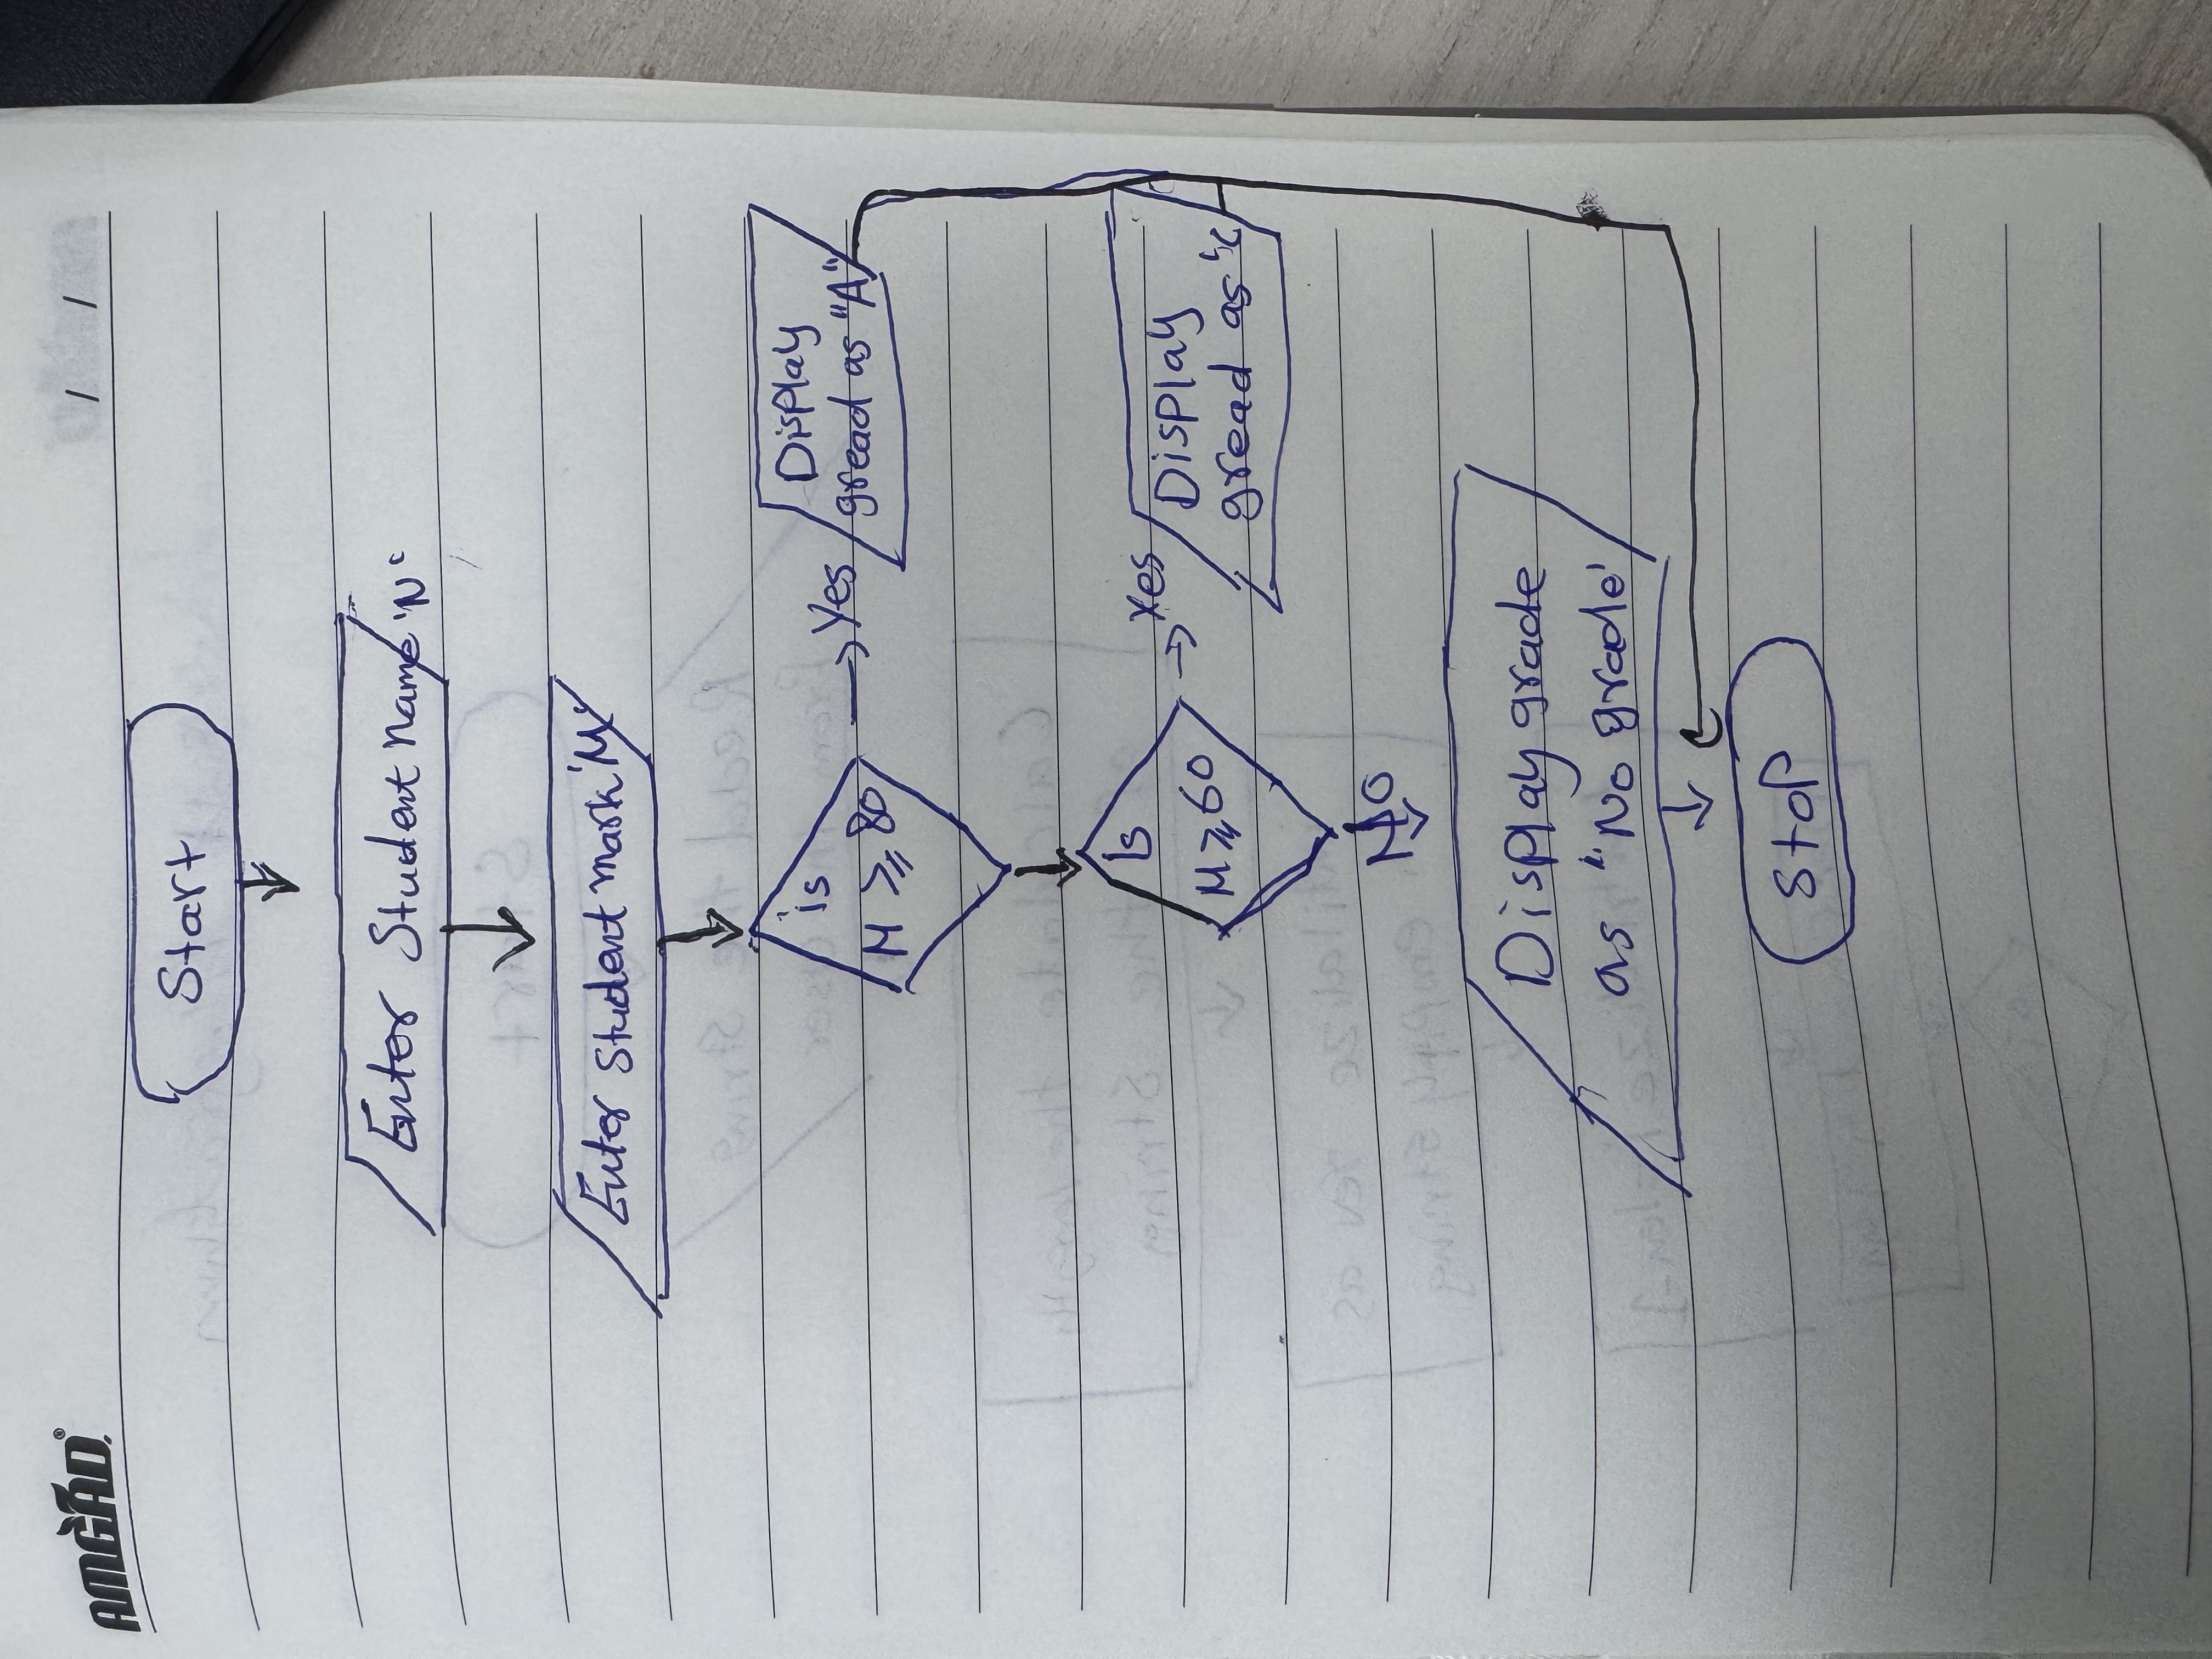 AMGAD
/ /
Start
Enter Student name 'N'
Enter student mark 'M'
is
M ≥ 80
Yes
Display
gread as "A"
Is
M ≥ 60
Yes
Display
gread as 'C
No
Display grade
as "No grade'
Stop